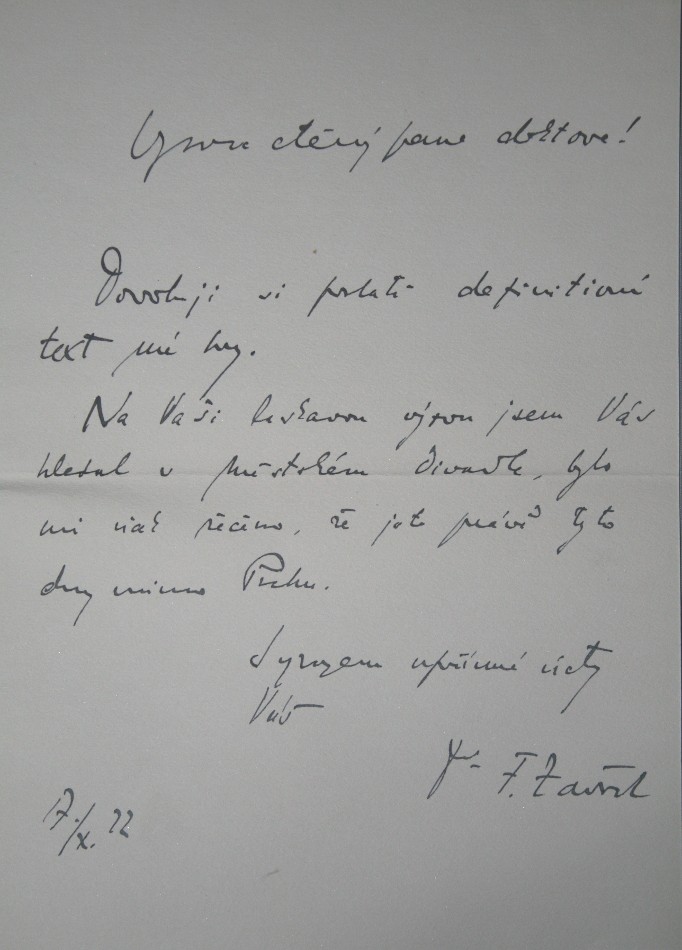 Vysoce ctěný pane doktore!
Dovoluji si poslati definitivní
text mé hry.
Na Vaši laskavou výzvu jsem Vás
hledal v Městském divadle, bylo
mi však řečeno, že jste právě tyto
dny mimo Prahu.
S výrazem upřímné úcty
Váš
Dr F. Zavřel
17./X. 22